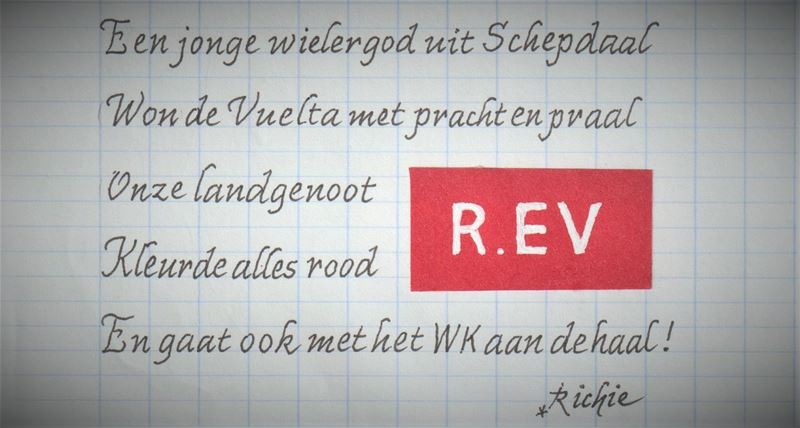 Een jonge wielergod uit Schepdaal
Won de Vuelta met pracht en praal
Onze landgenoot
R.EV
Kleurde alles rood
En gaat ook met het WK aan de haal!
*Richie